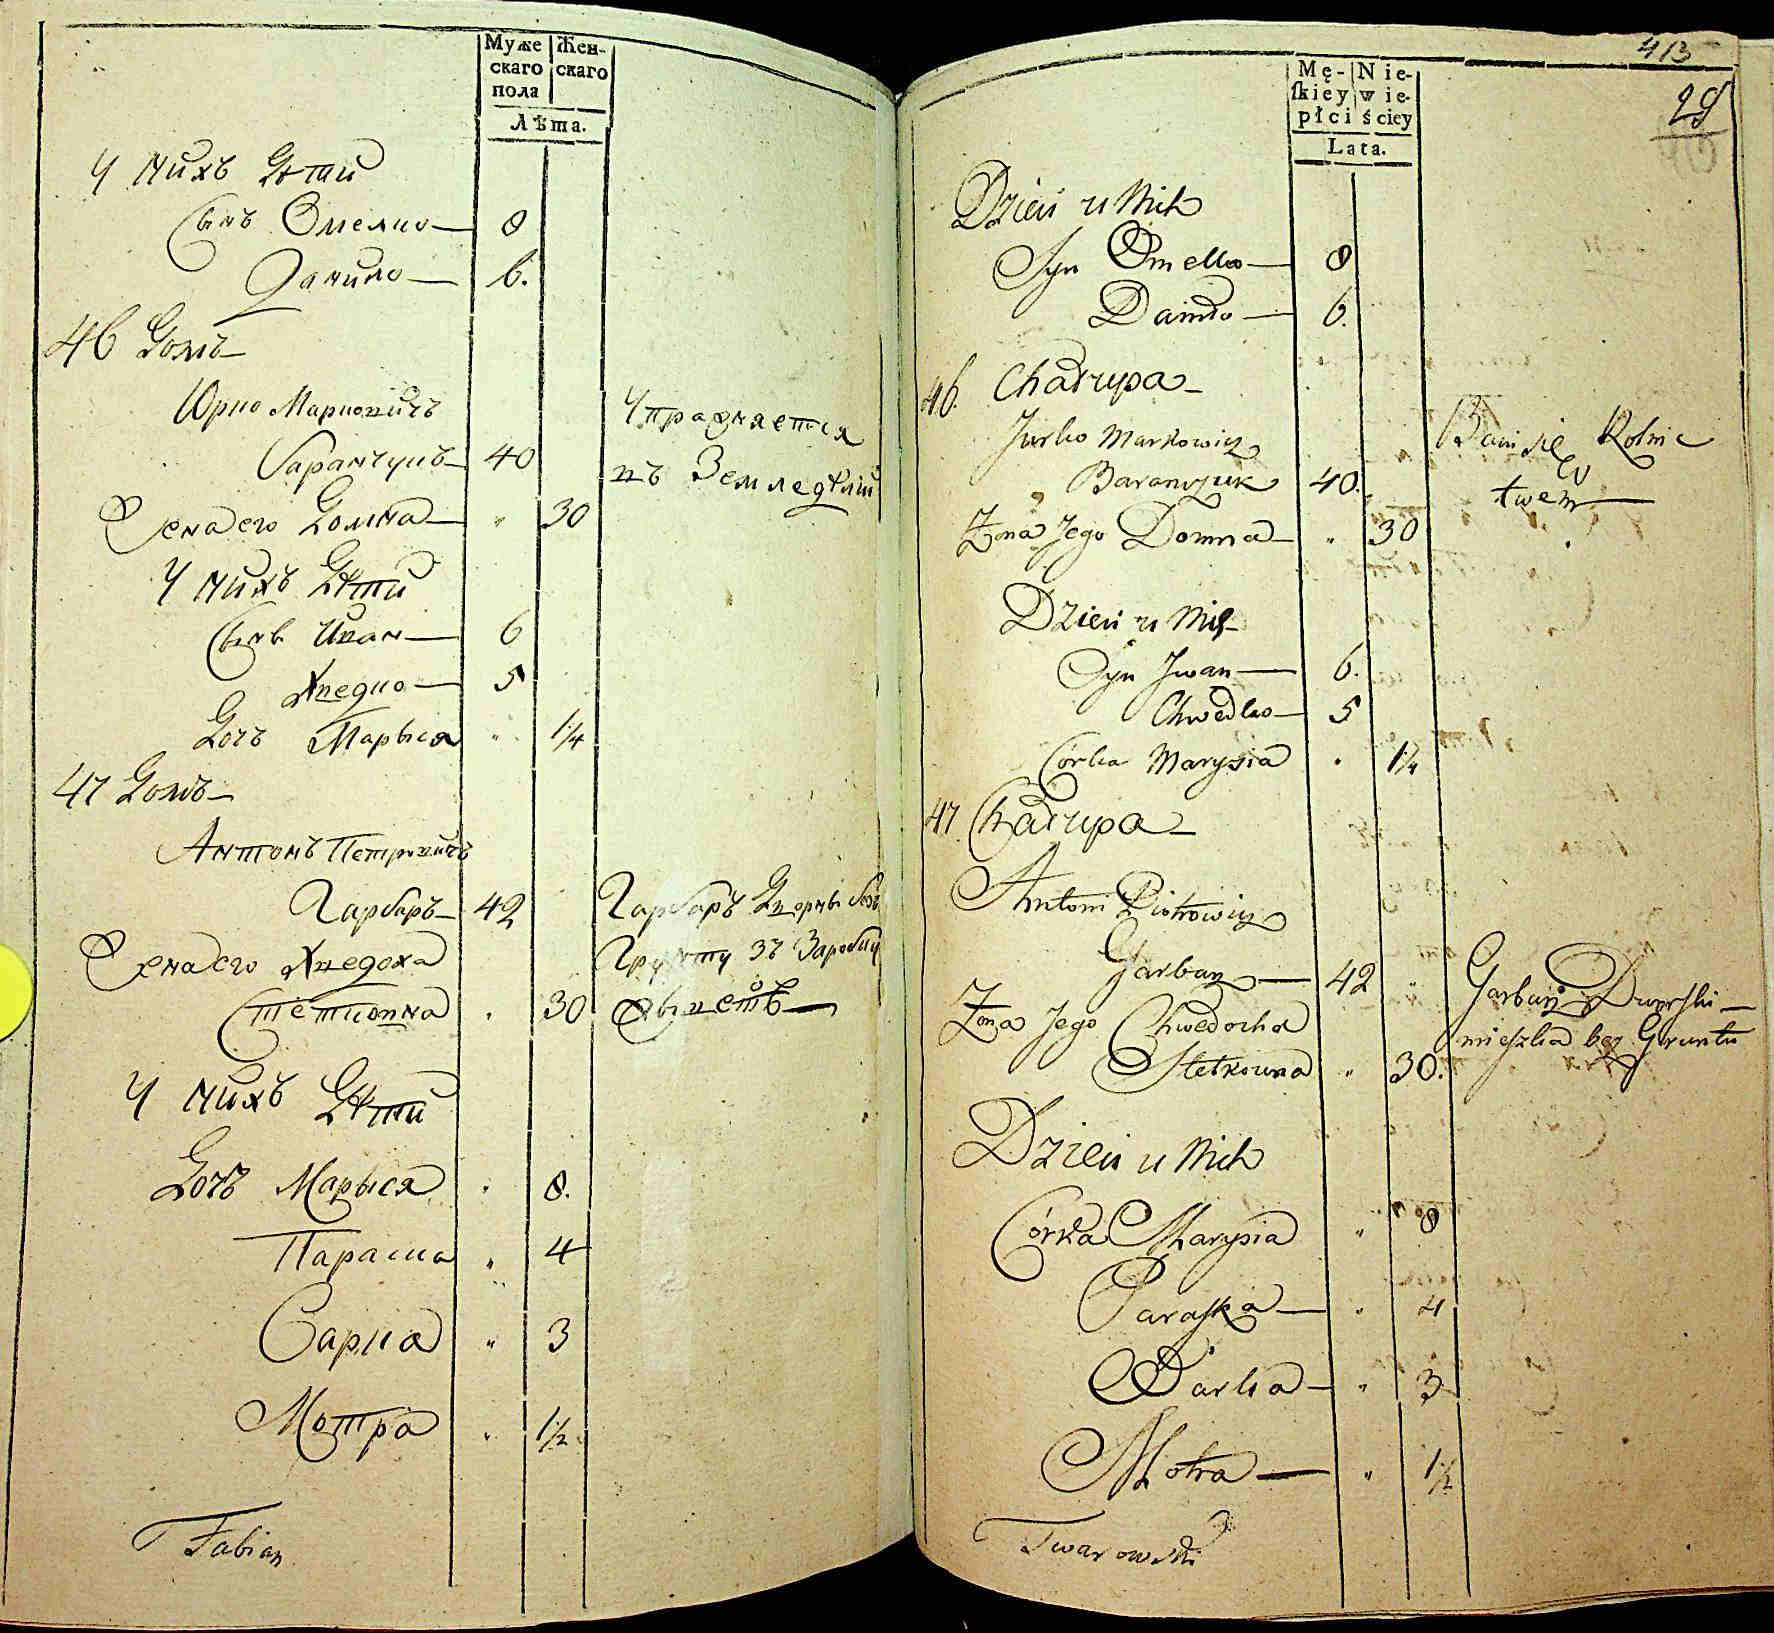 Муже
скаго
пола
Жен-
скаго
Лѣта.
У нихъ Дѣти
Сынъ Омелко — 8
Данило — 6.
46 Домъ —
Юрко Марковичъ
Баранчукъ — 40
Упражняется
въ Земледѣлии
Жена его Домна — " 30
У нихъ Дѣти
Сынъ Иван — 6
Хведко — 5
Дочъ Марыся " 1/4
47 Домъ —
Антонъ Петровичъ
Гарбаръ — 42
Гарбаръ Дворны безъ
Грунту зъ Заробку
Жена его Хведоха
Стетковна " 30
У нихъ Дѣти
Дочъ Марыся " 8.
Параска " 4
Дарка " 3
Мотра " 1/2
Fabian
413
29
Mę-
ſkiey
płci
Nie-
wie-
ściey
Lata.
Dzieci u Nich
Syn Omelko — 8
Daniło — 6.
46. Chałupa —
Jurko Markowicz
Baranczuk 40.
Bawi się Rolnic
twem —
Żona Jego Domna — " 30
Dzieci u Nich
Syn Iwan — 6.
Chwedko — 5
Córka Marysia " 1/4
47 Chałupa —
Antoni Piotrowicz
Garbarz — 42
Garbarz Dworski —
mieszka bez Gruntu
Żona Jego Chwedocha
Stetkowna " 30.
Dzieci u Nich
Córka Marysia " 8
Paraſka — " 4
Darka — " 3
Motra — " 1/2
Twarowski